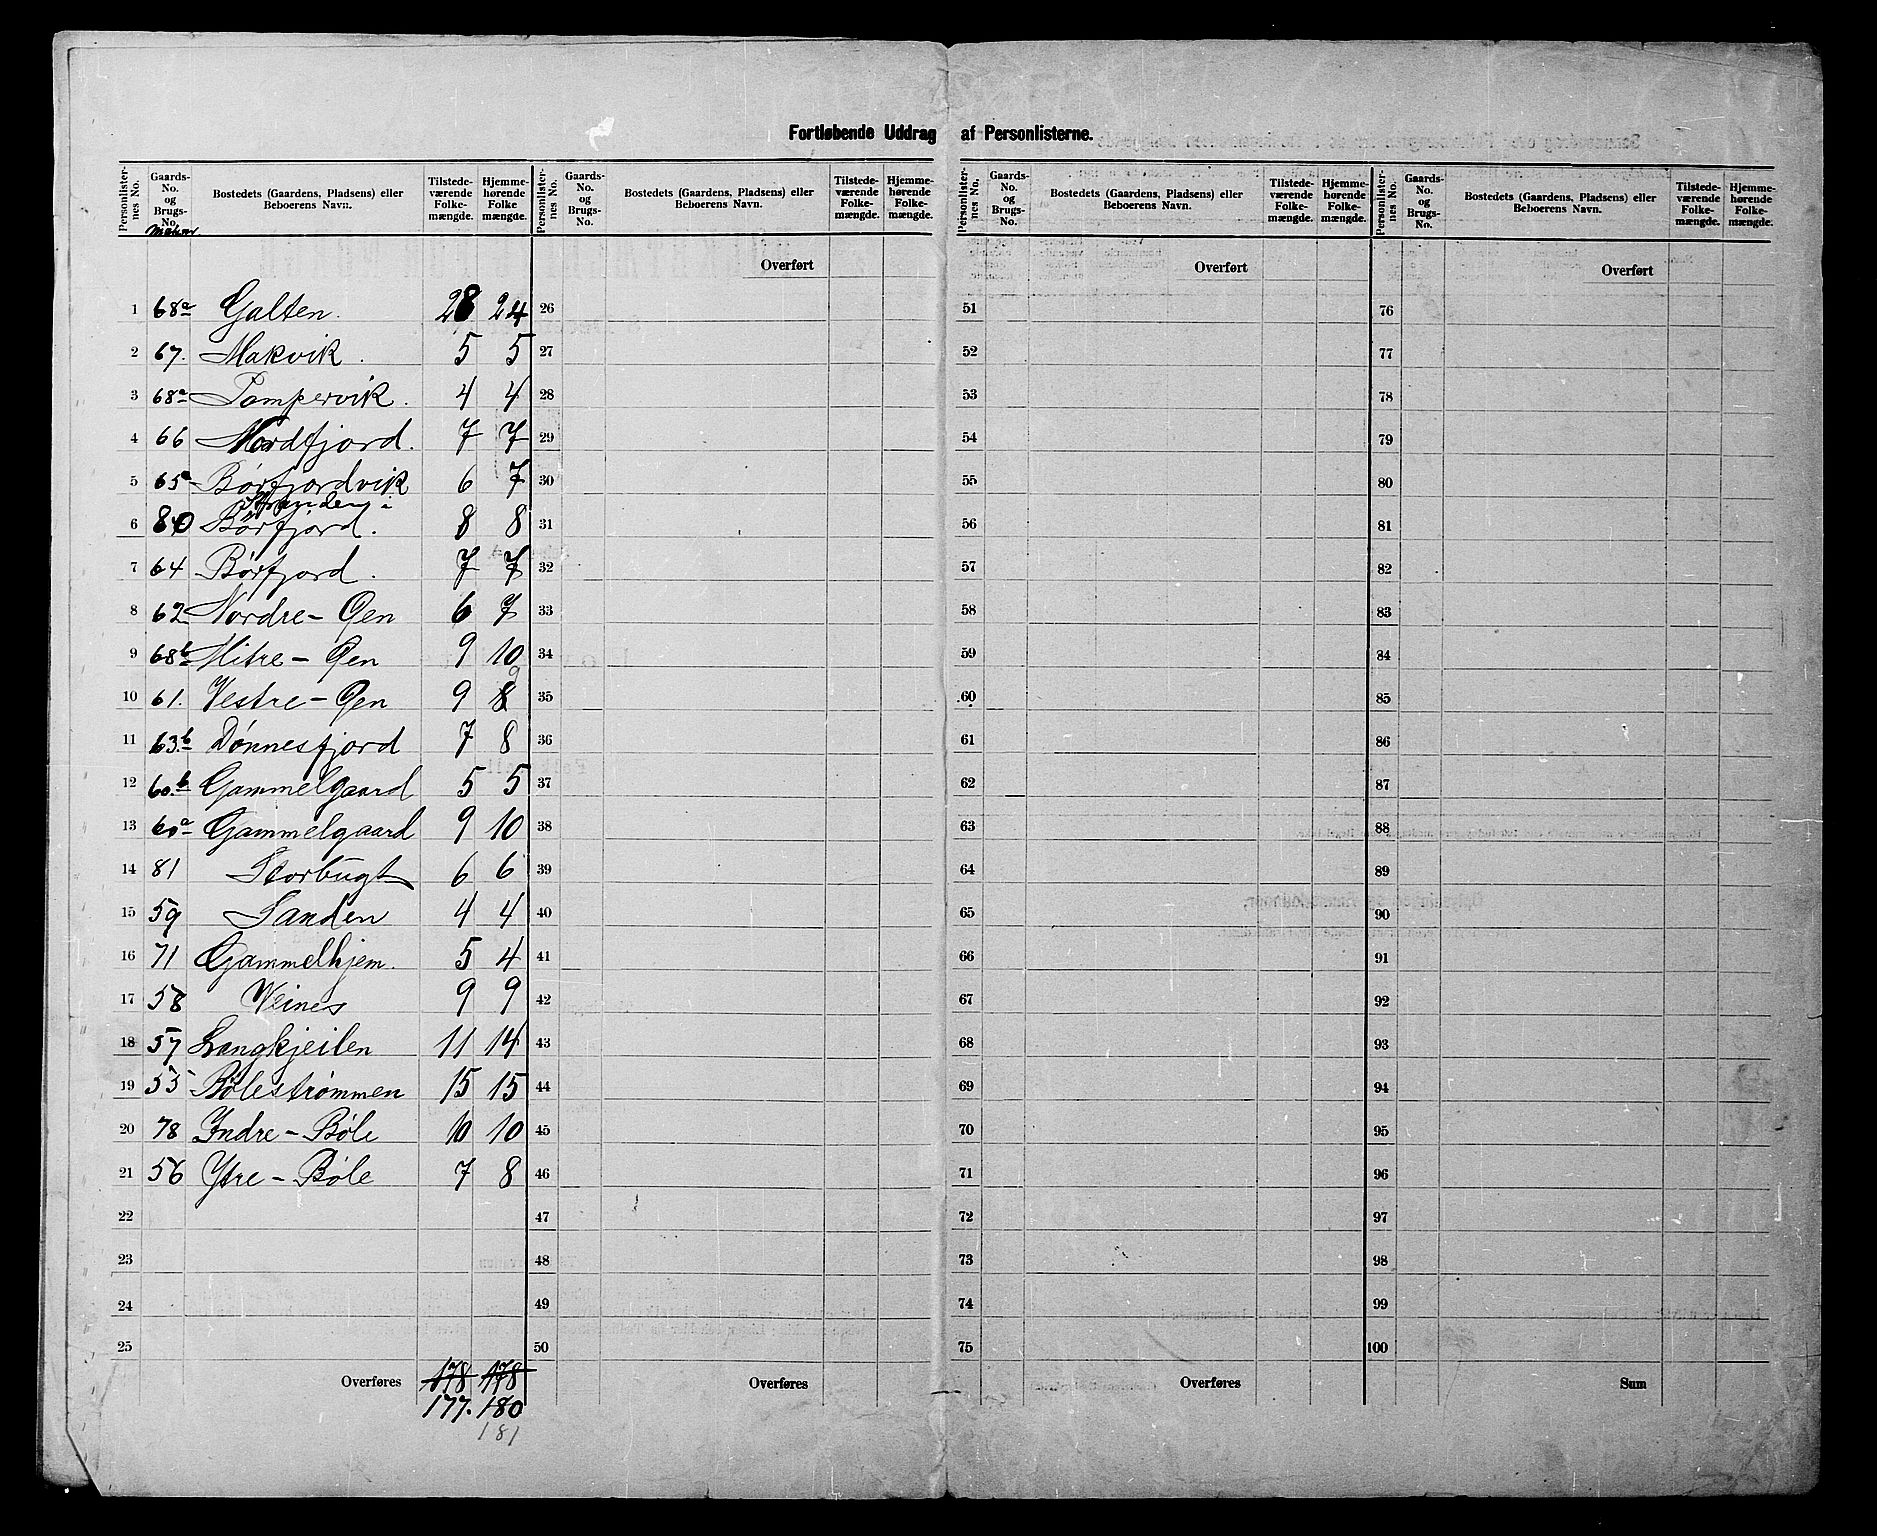 Fortløbende Uddrag af Personlisterne.
Personlister-nes No. | Gaards-No. og Brugs-No. Matr. | Bostedets (Gaardens, Pladsens) eller Beboerens Navn. | Tilstede-værende Folke-mængde. | Hjemme-hørende Folke mængde. | Personlister-nes No. | Gaards-No. og Brugs-No. | Bostedets (Gaardens, Pladsens) eller Beboerens Navn. | Tilstede-værende Folke-mængde. | Hjemme-hørende Folke-mængde. | Personlister-nes No. | Gaards-No. og Brugs-No. | Bostedets (Gaardens, Pladsens) eller Beboerens Navn. | Tilstede-værende Folke-mængde. | Hjemme-hørende Folke-mængde. | Personlister-nes No. | Gaards-No. og Brugs-No. | Bostedets (Gaardens, Pladsens) eller Beboerens Navn. | Tilstede-værende Folke-mængde. | Hjemme-hørende Folke-mængde.
Overført Overført Overført
1 68a Galten. 28 24 26 51 76
2 67. Makvik. 5 5 27 52 77
3 68a Pampervik. 4 4 28 53 78
4 66 Nordfjord. 7 7 29 54 79
5 65a Børfjordvik 6 7 30 55 80
Stranden i
6 80 Børfjord. 8 8 31 56 81
7 64 Børfjord. 7 7 32 57 82
8 62 Nordre-Øen 6 7 33 58 83
9 68b Mitre-Øen 9 10 34 59 84
9
10 61. Vestre-Øen 9 8 35 60 85
11 63.b Dønnesfjord 7 8 36 61 86
12 60.b Gammelgaard 5 5 37 62 87
13 60a Gammelgaard 9 10 38 63 88
14 81 Storbugt 6 6 39 64 89
15 59 Sanden 4 4 40 65 90
16 71 Gammelhjem. 5 4 41 66 91
17 58 Veines 9 9 42 67 92
18 57 Langkjeilen 11 14 43 68 93
19 55 Bølestrømmen 15 15 44 69 94
20 78 Indre-Bøle 10 10 45 70 95
21 56 Ytre-Bøle 7 8 46 71 96
22 47 72 97
23 48 73 98
24 49 74 99
25 50 75 100
Overføres 178 178 Overføres Overføres Sum
177. 180
181